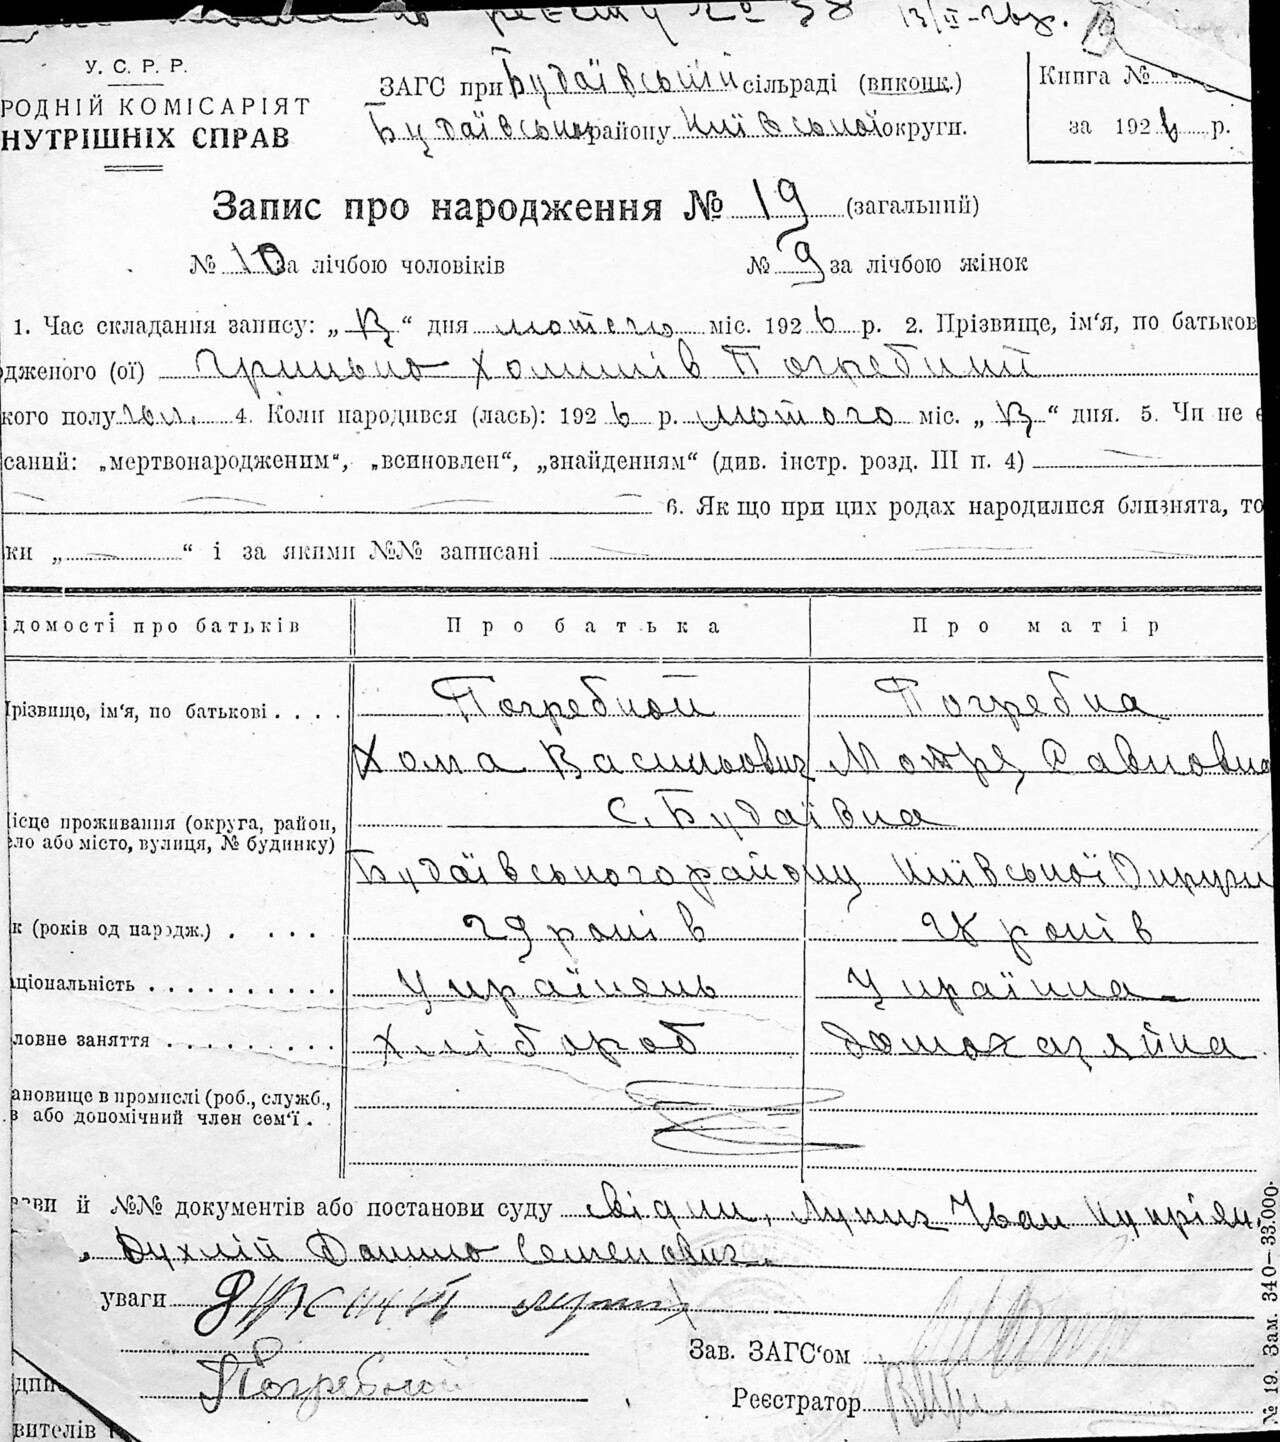 по реєстру № 38 13/II-26р.
У. С. Р. Р.
РОДНІЙ КОМІСАРІЯТ
НУТРІШНІХ СПРАВ
ЗАГС при Будаївській сільраді (виконк.)
Будаївського району Київської округи.
Книга №
за 1926 р.
Запис про народження № 19 (загальний)
№ 10 за лічбою чоловіків № 9 за лічбою жінок
1. Час складання запису: „13“ дня лютого міс. 1926 р. 2. Прізвище, ім'я, по батьков
дженого (ої) Грицько Хомин Погребний
кого полу чол. 4. Коли народився (лась): 1926 р. лютого міс. „13“ дня. 5. Чи не є
саний: „мертвонародженим“, „всиновлен“, „знайденням“ (див. інстр. розд. III п. 4)
6. Як що при цих родах народилися близнята, то
ки „ “ і за якими №№ записані
ідомості про батьків Про батька Про матір
Прізвище, ім'я, по батькові . . . . Погребной Погребна
Хома Васильович Мотря Савловна
ісце проживання (округа, район, С. Будаївка
ло або місто, вулиця, № будинку)
Будаївського району Київської Округи
к (років од народж.) . . . . 29 років 28 років
аціональність . . . . . . . . . . Українець Українка
ловне заняття . . . . . . . . . Хлібороб Домохазяйка
ановище в промислі (роб., служб.,
в або допомічний член сем'ї .
ви й №№ документів або постанови суду Свідки, Лупих Іван Купріян.
Духлій Данило Семенович.
уваги
Зав. ЗАГС'ом
Погребной
дпи
Реєстратор
вителів
№ 19. Зам. 340—33.000.